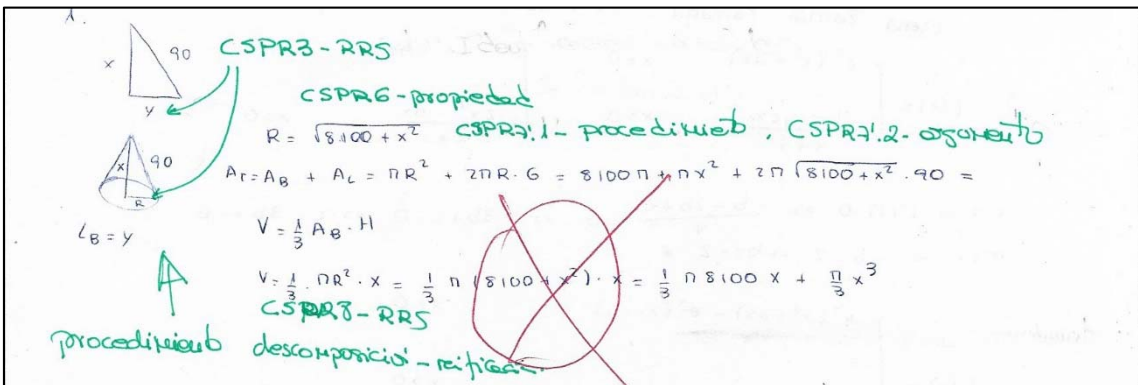 1.
90 CSPR3-RRS
x
y
CSPR6-propiedad
R = √8100 + x² CSPR7.1- procedimiento, CSPR7.2- argumento
x 90
R
A_T = A_B + A_L = πR² + 2πR·G = 8100π + πx² + 2π√8100+x² · 90 =
L_B = y
V = 1/3 A_B · H
V = 1/3 · πR² · x = 1/3 π (8100 + x²) · x = 1/3 π 8100 x + π/3 x³
CSPR8-RRS
procedimiento descomposició-reificació